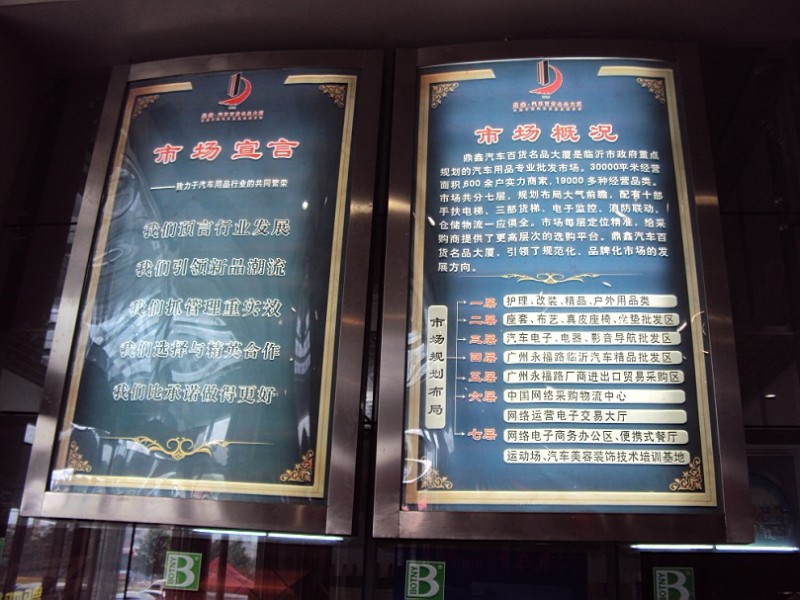 市场宣言
——致力于汽车用品行业的共同繁荣
我们预言行业发展
我们引领新品潮流
我们抓管理重实效
我们选择与精英合作
我们比承诺做得更好
市场概况
鼎鑫汽车百货名品大厦是临沂市政府重点
规划的汽车用品专业批发市场。30000平米经营
面积,600余户实力商家,19000多种经营品类。
市场共分七层,规划布局大气前瞻,配有十部
手扶电梯、三部货梯,电子监控、消防联动,
仓储物流一应俱全。市场每层定位精准,给采
购商提供了更高层次的选购平台。鼎鑫汽车百
货名品大厦,引领了规范化、品牌化市场的发
展方向。
市场规划布局
一层 护理、改装、精品、户外用品类
二层 座套、布艺、真皮座椅、坐垫批发区
三层 汽车电子、电器、影音导航批发区
四层 广州永福路临沂汽车精品批发区
五层 广州永福路厂商进出口贸易采购区
六层 中国网络采购物流中心
网络运营电子交易大厅
七层 网络电子商务办公区、便携式餐厅
运动场、汽车美容装饰技术培训基地
BOTNY
B
BOTNY
B
BOTNY
B